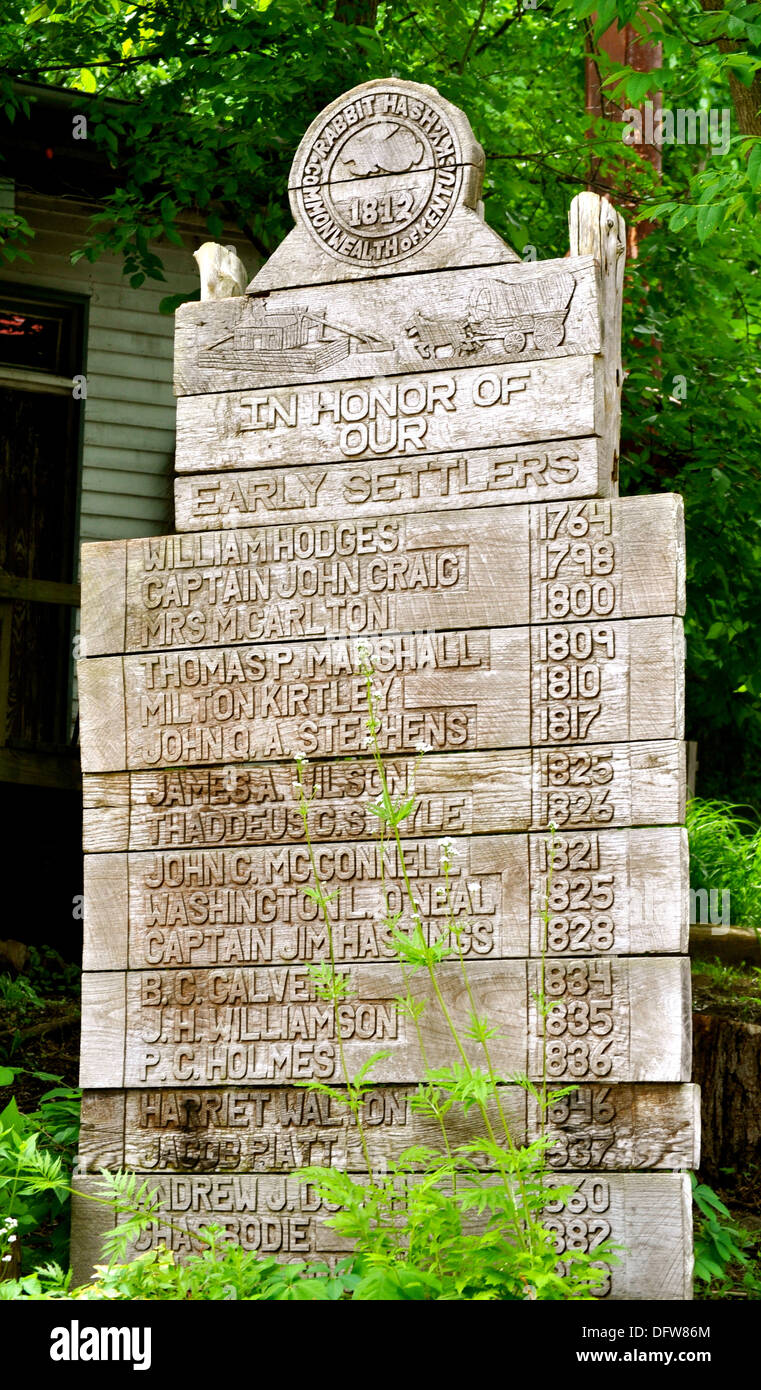 RABBIT HASH, KY.
1812
COMMONWEALTH OF KENTUCKY
IN HONOR OF
OUR
EARLY SETTLERS
WILLIAM HODGES 1764
CAPTAIN JOHN CRAIG 1798
MRS M. CARLTON 1800
THOMAS P. MARSHALL 1809
MILTON KIRTLEY 1810
JOHN Q. A. STEPHENS 1817
JAMES A. WILSON 1825
THADDEUS C. S. 1826
JOHN C. MCCONNELL 1821
WASHINGTON L. O'NEAL 1825
CAPTAIN JIM HASTINGS 1828
B. C. CALVERT 1834
J. H. WILLIAMSON 1835
P. C. HOLMES 1836
HARRIET WALTON 1846
JACOB PIATT
J.
CHAS BODIE
alamy
a
Image ID: DFW86M
www.alamy.com